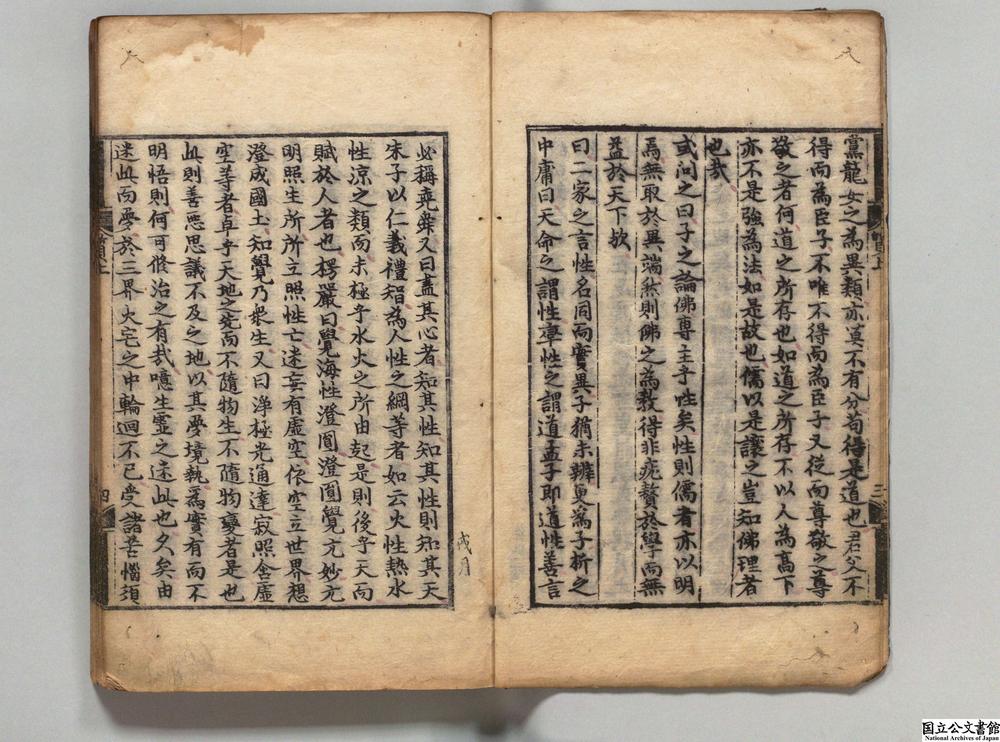 黨龍女之為異類亦莫不有分苟得是道也君父不
得而為臣子不唯不得而為臣子又從而尊敬之尊
敬之者何道之所存也如道之所存不以人為高下
亦不是強為法如是故也儒以是讓之豈知佛理者
也哉
或問之曰子之論佛專主乎性矣性則儒者亦以明
焉無取於異端然則佛之為教得非疣贅於學而無
益於天下欤
曰二家之言性名同而實異子猶未辨更為子折之
中庸曰天命之謂性率性之謂道孟子即道性善言
三
必稱堯舜又曰盡其心者知其性知其性則知其天
朱子以仁義禮智為人性之綱等者如云火性熱水
性涼之類而未極乎水火之所由起是則後乎天而
賦於人者也楞嚴曰覺海性澄圓澄圓覺元妙元
明照生所所立照性亡迷妄有虛空依空立世界想
澄成國土知覺乃衆生又曰淨極光通達寂照含虛
空等者卓乎天地之先而不隨物生不隨物變者是也
此則善惡思議不及之地以其夢境執為實有而不
明悟則何可修治之有哉噫生靈之迷此也久矣由
迷此而夢於三界火宅之中輪迴不已受諸苦惱須
四
国立公文書館
National Archives of Japan